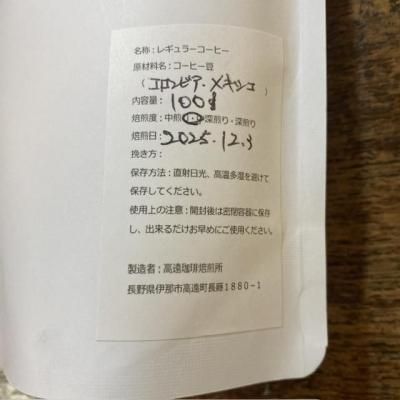 名称：レギュラーコーヒー
原材料名：コーヒー豆
（コロンビア・メキシコ）
内容量：100g
焙煎度：中煎り・中深煎り・深煎り
焙煎日：2025.12.3
挽き方：
保存方法：直射日光、高温多湿を避けて
保存してください。
使用上の注意：開封後は密閉容器に保存
し、出来るだけお早めにご使用ください。
製造者：高遠珈琲焙煎所
長野県伊那市高遠町長藤1880-1